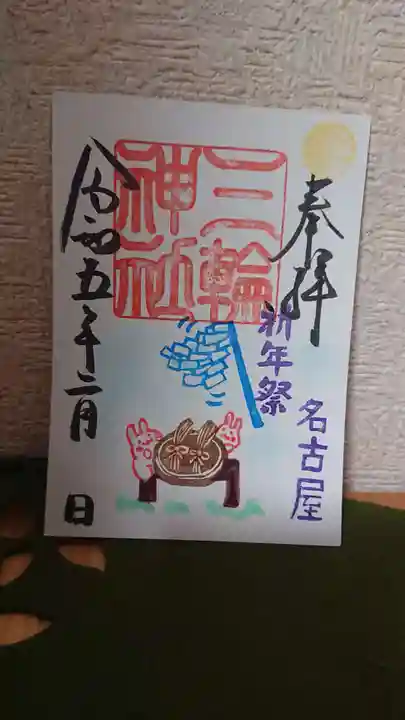 奉拝
祈年祭
名古屋
三輪
神社
令和五年二月 日